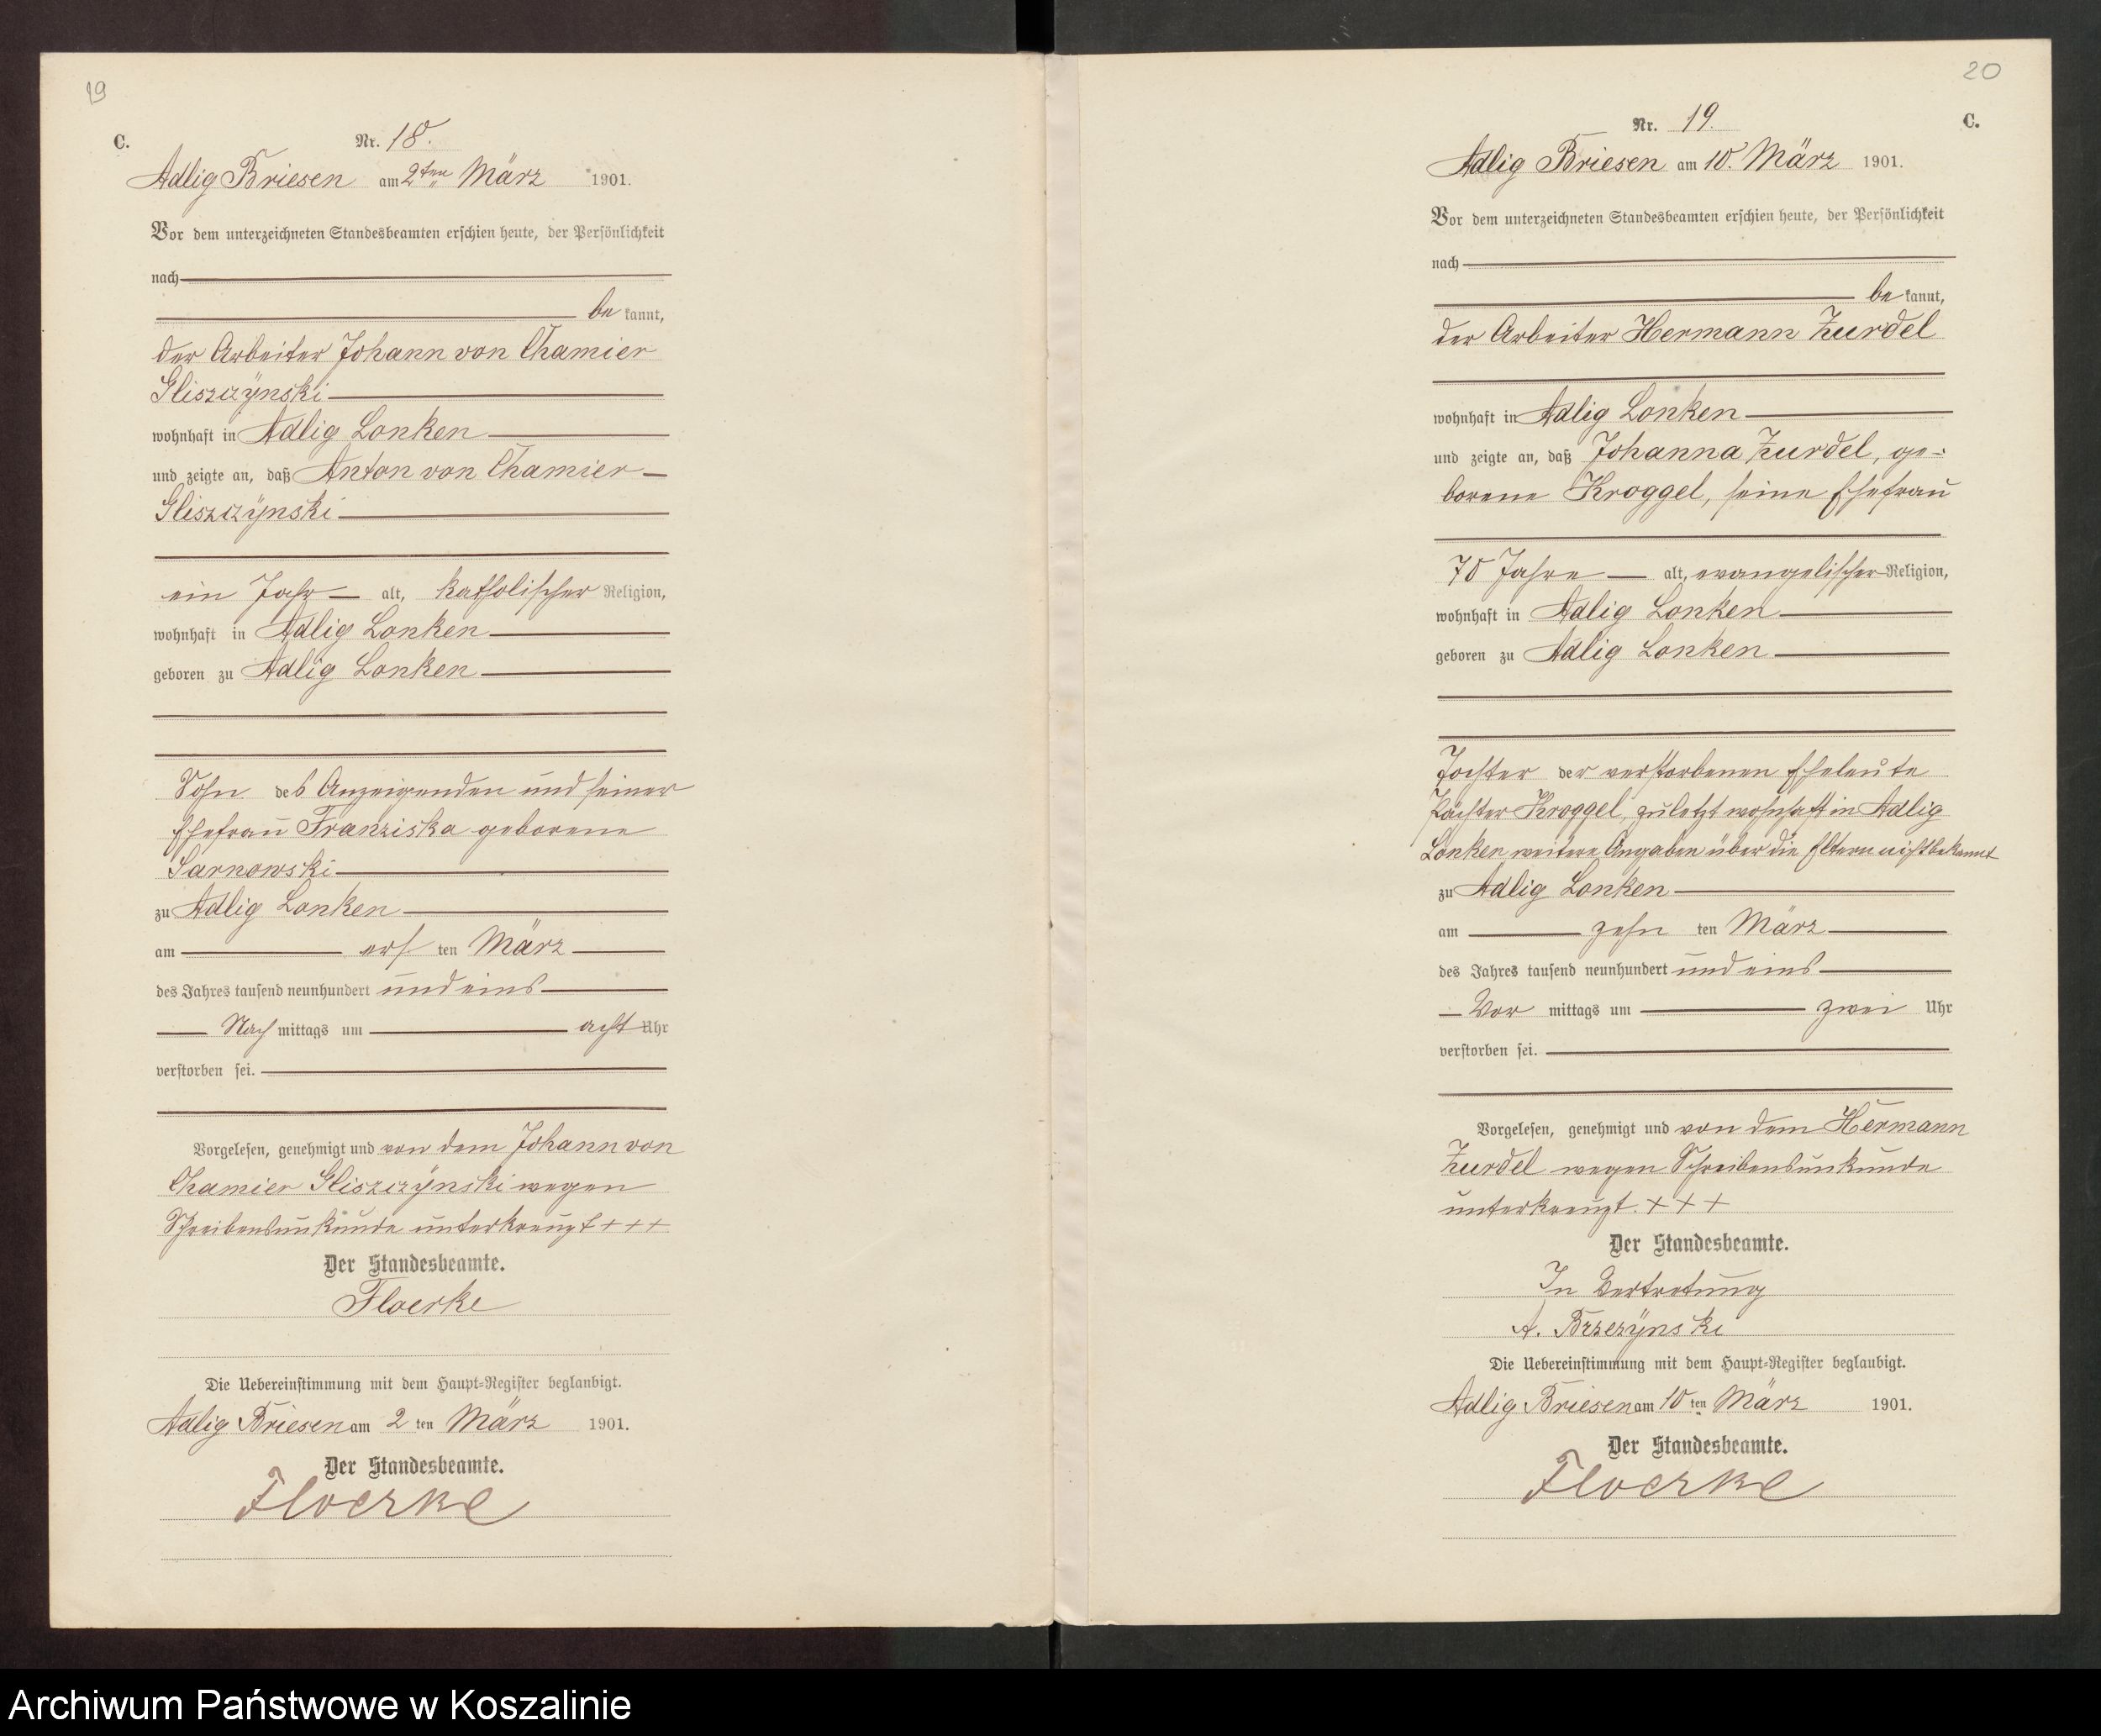 19
C.
Nr. 18.
Adlig Briesen am 2ten März 1901.
Vor dem unterzeichneten Standesbeamten erschien heute, der Persönlichkeit
nach
be kannt,
der Arbeiter Johann von Chamier
Gliszczÿnski
wohnhaft in Adlig Lonken
und zeigte an, daß Anton von Chamier-
Gliszczÿnski
ein Jahr alt, katholischer Religion,
wohnhaft in Adlig Lonken
geboren zu Adlig Lonken
Sohn des Anzeigenden und seiner
Ehefrau Franziska geborene
Sarnowski
zu Adlig Lonken
am ersten März
des Jahres tausend neunhundert und eins
Nach mittags um acht Uhr
verstorben sei.
Vorgelesen, genehmigt und von dem Johann von
Chamier Gliszczÿnski wegen
Schreibensunkunde unterkreuzt + + +
Der Standesbeamte.
Floerke
Die Uebereinstimmung mit dem Haupt-Register beglaubigt.
Adlig Briesen am 2 ten März 1901.
Der Standesbeamte.
Floerke
20
C.
Nr. 19.
Adlig Briesen am 10. März 1901.
Vor dem unterzeichneten Standesbeamten erschien heute, der Persönlichkeit
nach
be kannt,
der Arbeiter Hermann Zurdel
wohnhaft in Adlig Lonken
und zeigte an, daß Johanna Zurdel, ge-
borene Kroggel, seine Ehefrau
70 Jahre alt, evangelischer Religion,
wohnhaft in Adlig Lonken
geboren zu Adlig Lonken
Tochter der verstorbenen Eheleute
Pächter Kroggel, zuletzt wohnhaft in Adlig
Lonken weitere Angaben über die Eltern nicht bekannt
zu Adlig Lonken
am zehn ten März
des Jahres tausend neunhundert und eins
Vor mittags um zwei Uhr
verstorben sei.
Vorgelesen, genehmigt und von dem Hermann
Zurdel wegen Schreibensunkunde
unterkreuzt. + + +
Der Standesbeamte.
In Vertretung
A. Brzezÿnski
Die Uebereinstimmung mit dem Haupt-Register beglaubigt.
Adlig Briesen am 10 ten März 1901.
Der Standesbeamte.
Floerke
Archiwum Państwowe w Koszalinie